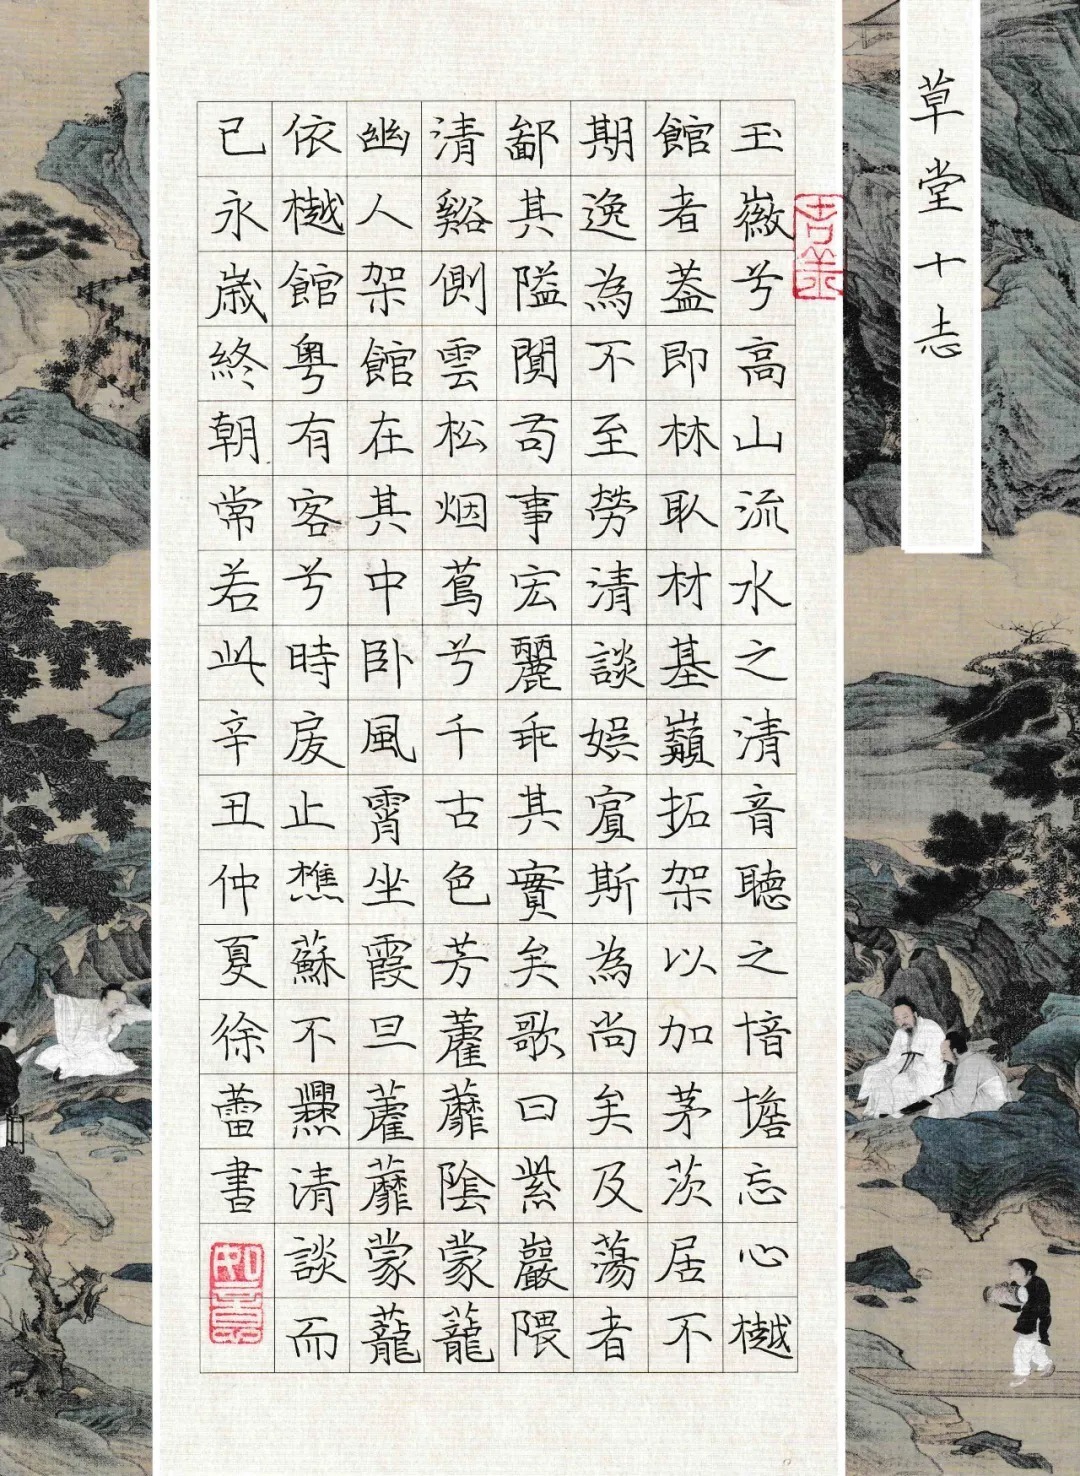 草堂十志
玉徽兮高山流水之清音聽之愔憺忘心樾
館者蓋即林取材基巔拓架以加茅茨居不
期逸為不至勞清談娛賓斯為尚矣及蕩者
鄙其隘闃苟事宏麗乖其實矣歌曰紫巖隈
清谿側雲松烟蔦兮千古色芳藿蘼陰蒙蘢
幽人架館在其中卧風霄坐霞旦藿蘼蒙蘢
依樾館粵有客兮時戾止樵蘇不爨清談而
已永歲終朝常若此辛丑仲夏徐蕾書